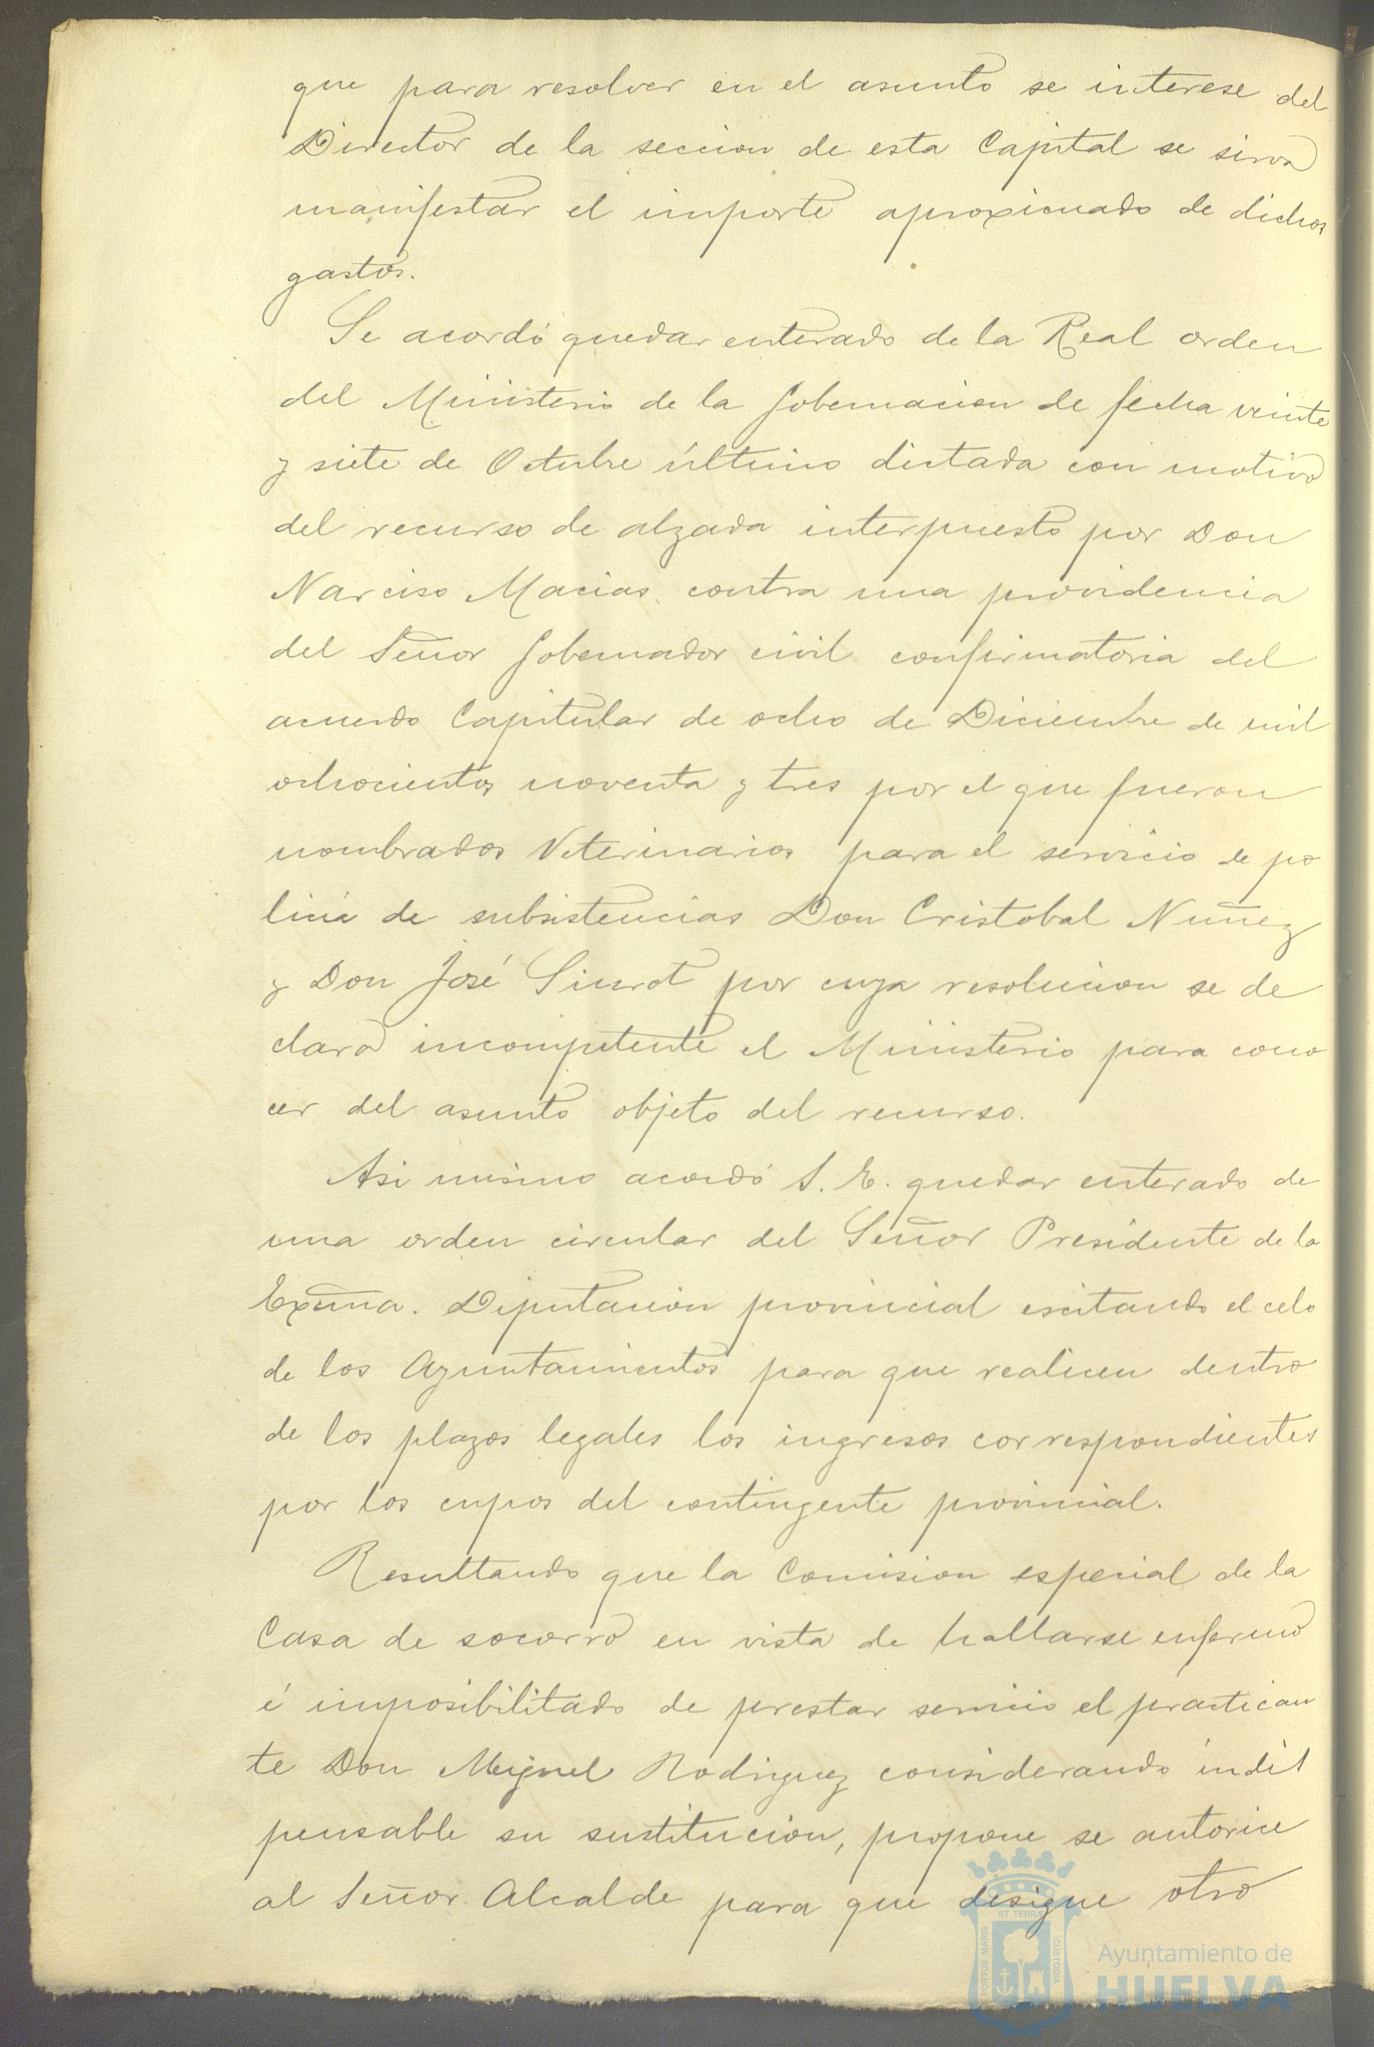 que para resolver en el asunto se interese del
Director de la seccion de esta Capital se sirva
manifestar el importe aproximado de dichos
gastos.
Se acordó quedar enterado de la Real orden
del Ministerio de la Gobernacion de fecha veinte
y siete de Octubre último dictada con motivo
del recurso de alzada interpuesto por Don
Narciso Macias contra una providencia
del Señor Gobernador civil confirmatoria del
acuerdo Capitular de ocho de Diciembre de mil
ochocientos noventa y tres por el que fueron
nombrados Veterinarios para el servicio de po
licia de subsistencias Don Cristobal Nuñez
y Don José Siurot por cuya resolucion se de
clara incompetente el Ministerio para cono
cer del asunto objeto del recurso.
Asi mismo acordó S. E. quedar enterado de
una orden circular del Señor Presidente de la
Exma. Diputacion provincial escitando el celo
de los Ayuntamientos para que realicen dentro
de los plazos legales los ingresos correspondientes
por los cupos del contingente provincial.
Resultando que la Comision especial de la
Casa de socorro en vista de hallarse enfermo
é imposibilitado de prestar servicio el practican
te Don Miguel Rodriguez considerando indis
pensable su sustitucion, propone se autorice
al Señor Alcalde para que designe otro
PORTUS MARIS
ET TERRAE
CUSTODIA
Ayuntamiento de
HUELVA